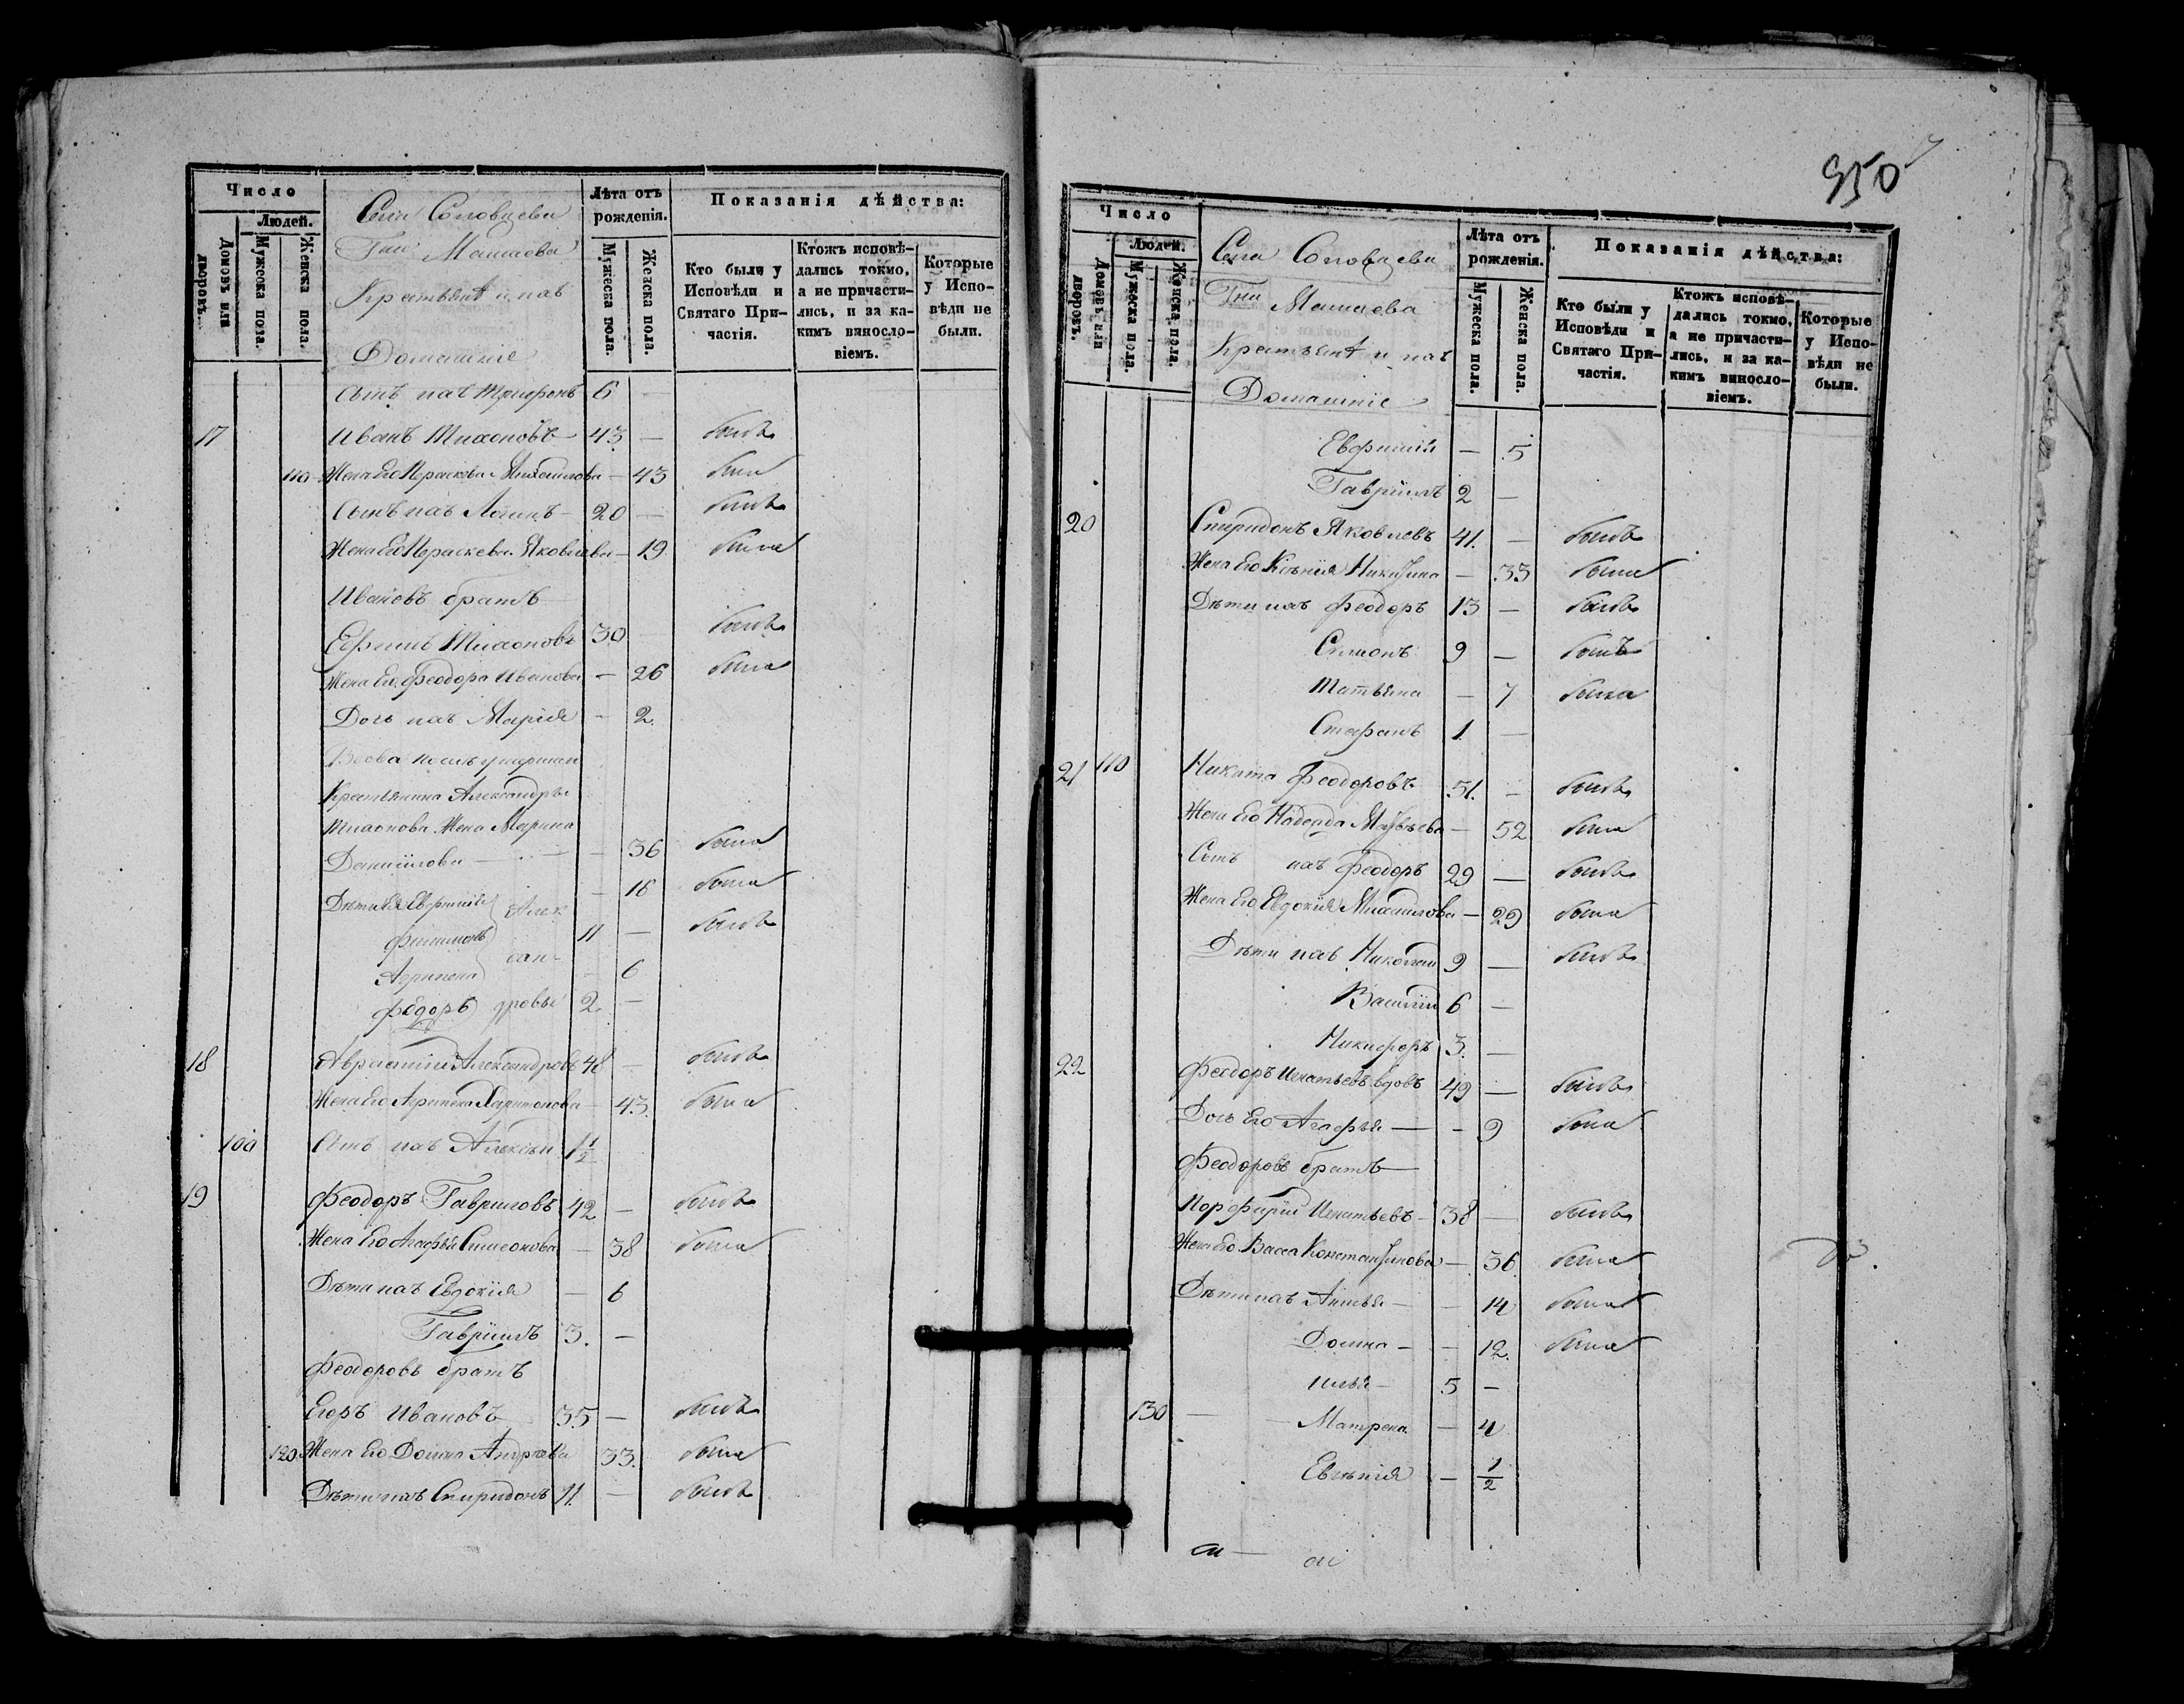 Число
Людей.
Домовъ или дворовъ.
Мужеска пола.
Женска пола.
Села
Гна
Крестьяне и ихъ
Домашніе
Лѣта отъ рожденія.
Мужеска пола.
Женска пола.
Показанія дѣйства:
Кто были у Исповѣди и Святаго Причастія.
Ктожъ исповѣдались токмо, а не причастились, и за какимъ винословіемъ.
Которые у Исповѣди не были.
Сынъ ихъ Трифонъ 6 —
17 Иванъ Тихоновъ 43 — былъ
110 Жена его Параскева Михайлова — 43 была
Сынъ ихъ Логинъ 20 — былъ
Жена его Параскева Яковлева — 19 была
Ивановъ братъ
Ефимъ Тихоновъ 30 былъ
Жена его Феодора Иванова — 26 была
Дочь ихъ Марія — 2
Вдова послѣ умершаго
Крестьянина Александра
Тихонова Жена Марина
Даніилова — — 36 была
Дѣти ея — 16 была
Филимонъ 11 — былъ
Агрипена — 6
Федоръ 2 —
Александровы
18 Александровъ 48 — былъ
Жена его Агрипена Харитонова — 43 была
100 Сынъ ихъ Алексѣй 1 1/2
19 Феодоръ Гавриловъ 42 — былъ
Жена его Агафья Симеонова — 38 была
Дѣти ихъ Евдокія — 6
Гавріилъ 3 —
Феодоровъ братъ
Егоръ Ивановъ 35 — былъ
120 Жена его Домна Андреева 33 была
Дѣти ихъ Спиридонъ 11 — былъ
950
Число
Людей.
Домовъ или дворовъ.
Мужеска пола.
Женска пола.
Села
Гна
Крестьяне и ихъ
Домашніе
Лѣта отъ рожденія.
Мужеска пола.
Женска пола.
Показанія дѣйства:
Кто были у Исповѣди и Святаго Причастія.
Ктожъ исповѣдались токмо, а не причастились, и за какимъ винословіемъ.
Которые у Исповѣди не были.
Евфимія — 5
Гавріилъ 2 —
20 Спиридонъ Яковлевъ 41 — былъ
Жена его Ксенія Никитина — 33 была
Дѣти ихъ Феодоръ 13 — былъ
Симонъ 9 — былъ
Татьяна — 7 была
Стефанъ 1 —
21 110 Никита Феодоровъ 51 — былъ
Жена его Надежда Матвѣева — 52 была
Сынъ ихъ Феодоръ 29 — былъ
Жена его Евдокія Михаилова — 29 была
Дѣти ихъ Николай 9 — былъ
Василій 6 —
Никифоръ 3 —
22 Феодоръ Игнатьевъ вдовъ 49 — былъ
Дочь его Агафья — — 9 была
Феодоровъ братъ
Порфирій Игнатьевъ 38 — былъ
Жена его Васса Константинова — 36 была
Дѣти ихъ — 14 была
Домна — — 12 была
Илья — 5 —
130 — Матрена — 4
Евгенія — 1/2